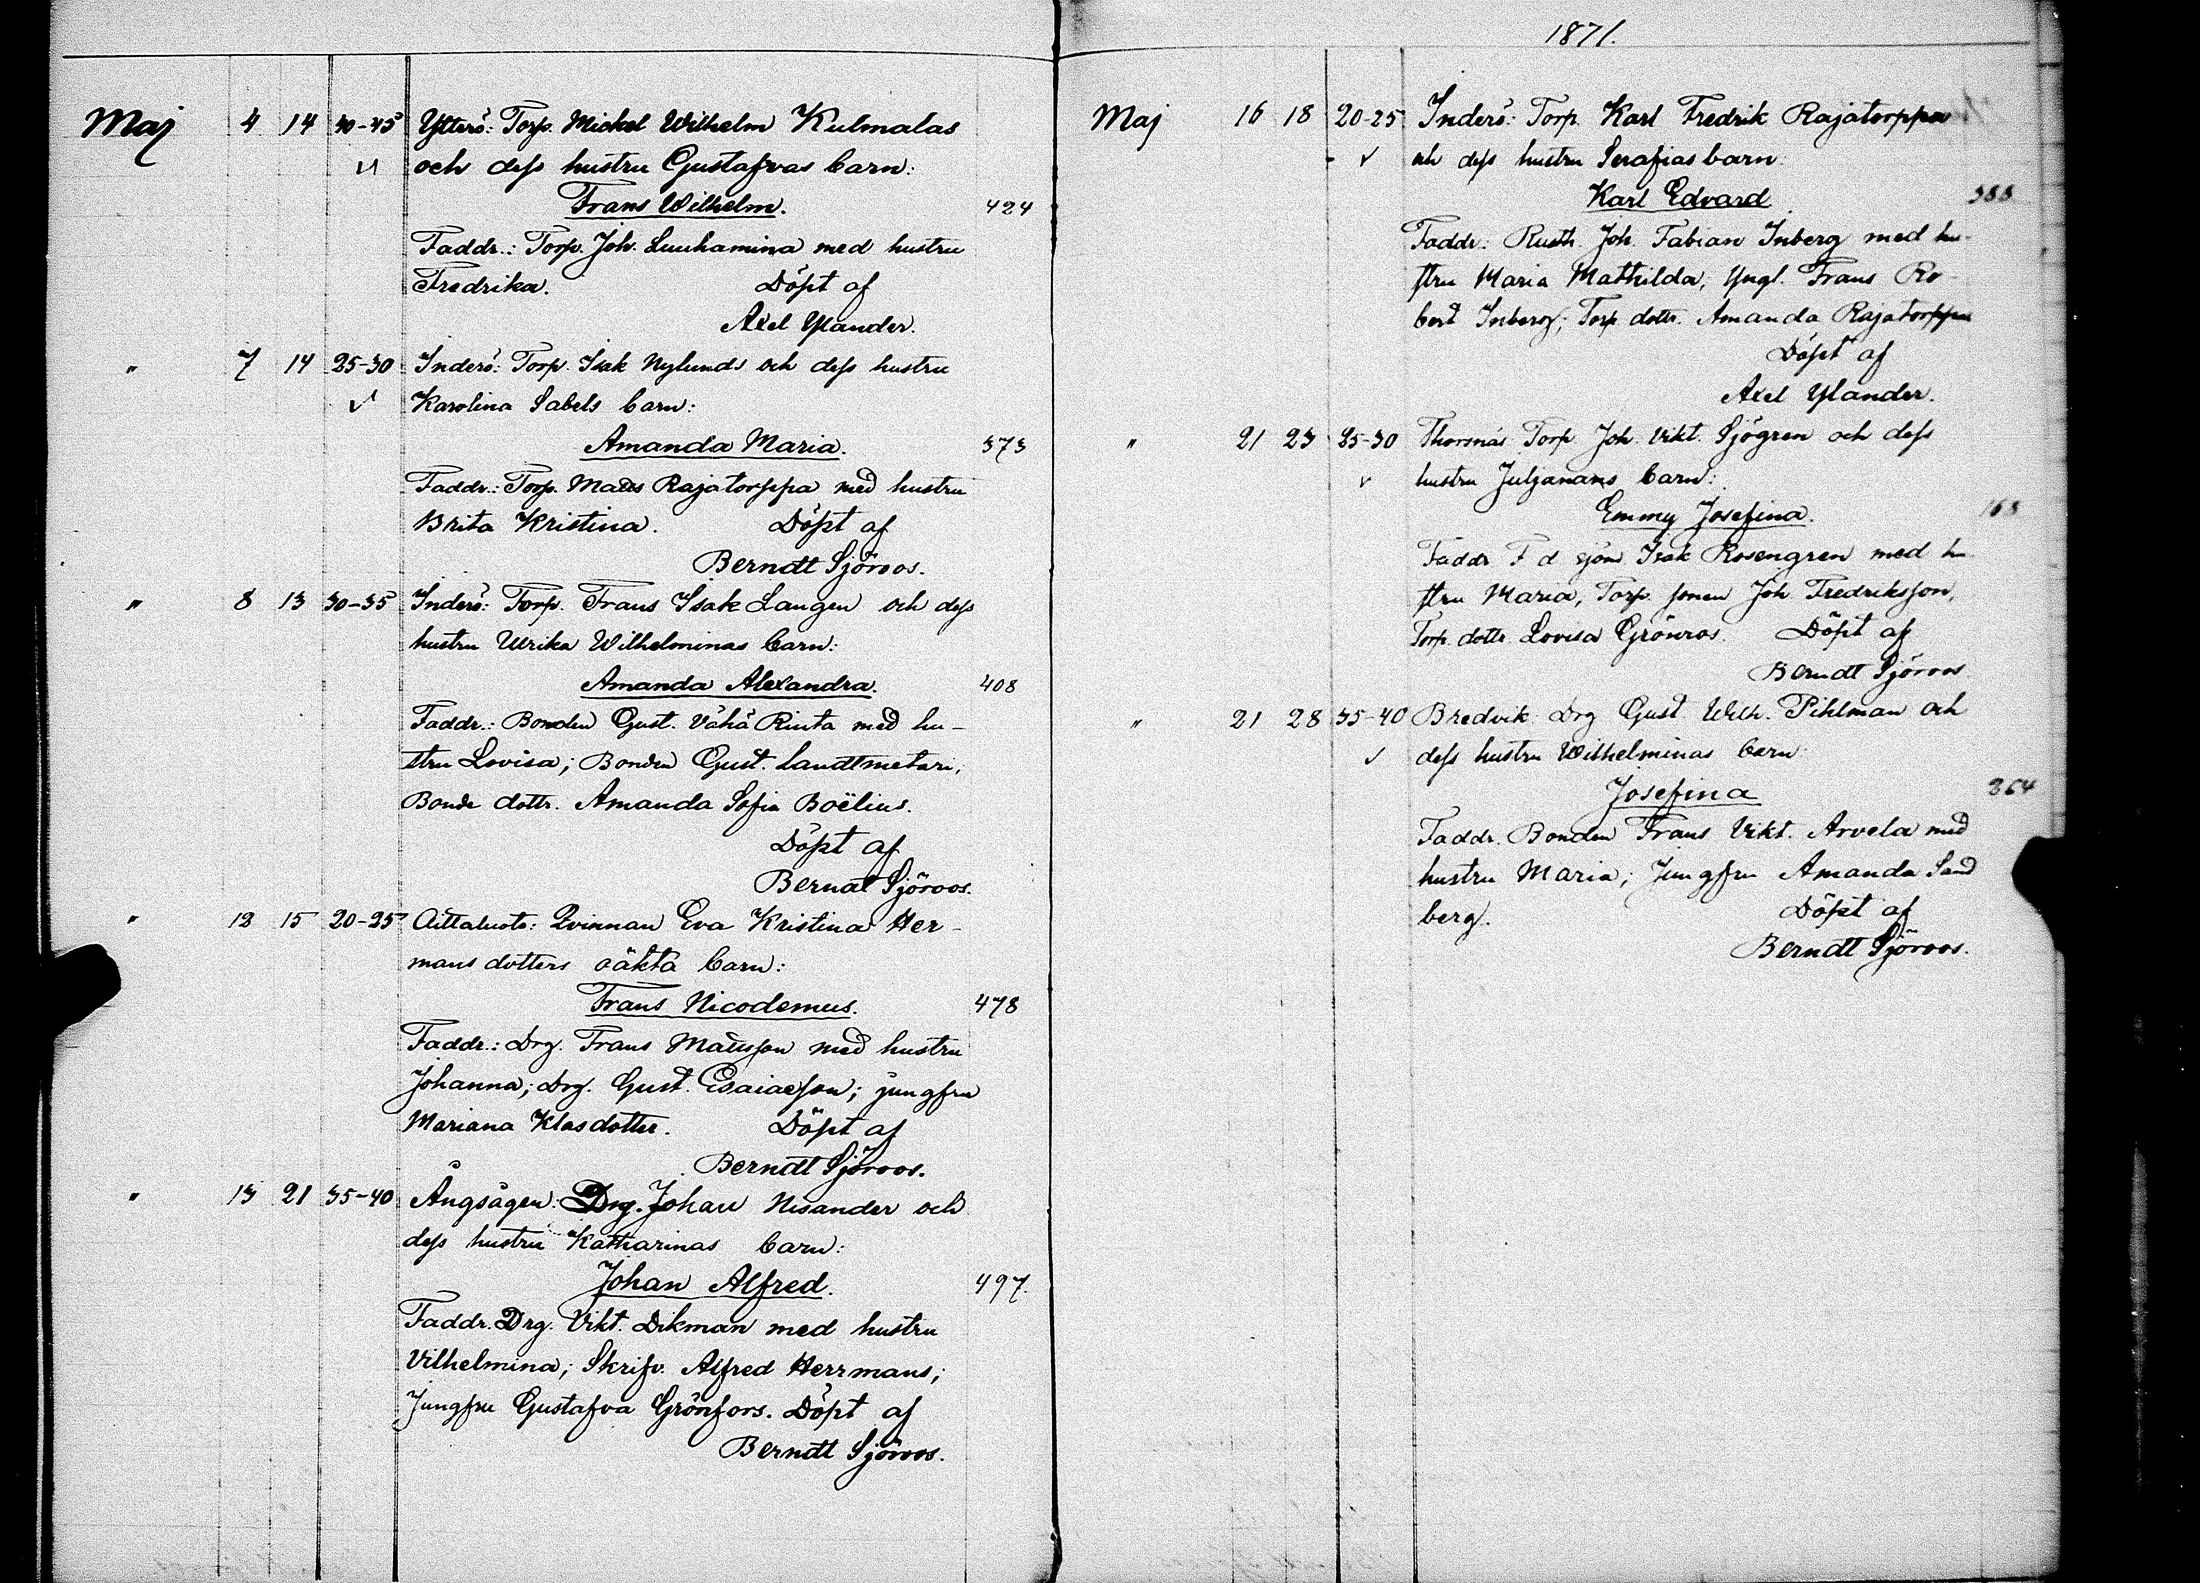 1871.
Maj 4 14 40-45 Ytterö: Torp. Mickel Wilhelm Kulmalas
och dess hustru Gustafvas barn:
Frans Wilhelm. 424
Faddr.: Torp. Joh. Luuhamina med hustru
Fredrika. Döpt af
Axel Ylander.
" 7 14 25-30 Inderö: Torp. Isak Nylunds och dess hustru
Karolina Sabels barn:
Amanda Maria. 373
Faddr.: Torp. Matts Rajatorppa med hustru
Brita Kristina. Döpt af
Berndt Sjöroos.
" 8 13 30-35 Inderö: Torp. Frans Isak Langen och dess
hustru Ulrika Wilhelminas barn:
Amanda Alexandra. 408
Faddr.: Bonden Gust. Vähä Rinta med hu-
stru Lovisa; Bonden Gust. Landtmetari,
Bonde dottr. Amanda Sofia Boëlius.
Döpt af
Berndt Sjöroos.
" 12 15 20-25 Aittaluoto: Qvinnan Eva Kristina Her-
mans dotters oäkta barn:
Frans Nicodemus. 478
Faddr.: Drg. Frans Mattsson med hustru
Johanna; Drg. Gust. Esaiasson; jungfru
Mariana Klasdotter. Döpt af
Berndt Sjöroos.
" 13 21 35-40 Ångsågen: Drg. Johan Nisander och
dess hustru Katharinas barn:
Johan Alfred. 497.
Faddr. Drg. Vikt. Dikman med hustru
Vilhelmina; Skrifv. Alfred Herrmans;
Jungfru Gustafva Grönfors. Döpt af
Berndt Sjöroos.
Maj 16 18 20-25 Inderö: Torp. Karl Fredrik Rajatorppas
och dess hustru Serafias barn:
Karl Edvard 388
Faddr: Rusth. Joh. Fabian Inberg med hu-
stru Maria Mathilda; Yngl. Frans Ro-
bert Inberg; Torp. dottr. Amanda Rajatorppa
Döpt af
Axel Ylander.
" 21 23 25-30 Thorsnäs Torp Joh. Vikt. Sjögren och dess
hustru Juljanans barn:
Emmy Josefina.
Faddr F d sjöm Isak Rosengren med hu
stru Maria, Torp. sonen Joh. Fredriksson,
Torp. dottr. Lovisa Grönros. Döpt af
Berndt Sjöroos
" 21 28 35-40 Bredvik Drg Gust. Wilh. Pihlman och
dess hustru Wilhelminas barn
Josefina 364
Faddr. Bonden Frans Vikt. Arvela med
hustru Maria; Jungfru Amanda Sand
berg. Döpt af
Berndt Sjöroos.